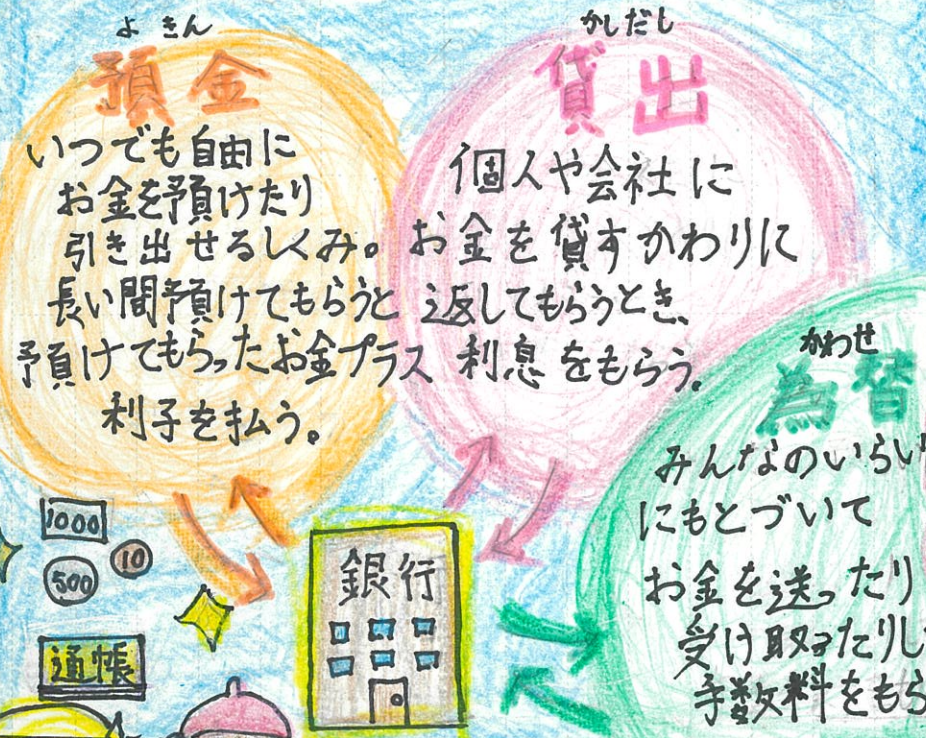 よきん
預金
いつでも自由に
お金を預けたり
引き出せるしくみ。
長い間預けてもらうと
予頁けてもらったお金プラス
利子を払う。
かしだし
貸出
個人や会社に
お金を貸すかわりに
返してもらうとき、
利息をもらう。
かわせ
為替
みんなのいらい
にもとづいて
お金を送ったり
受け取ったりし
手数料をもら
1000
500
10
通帳
銀行